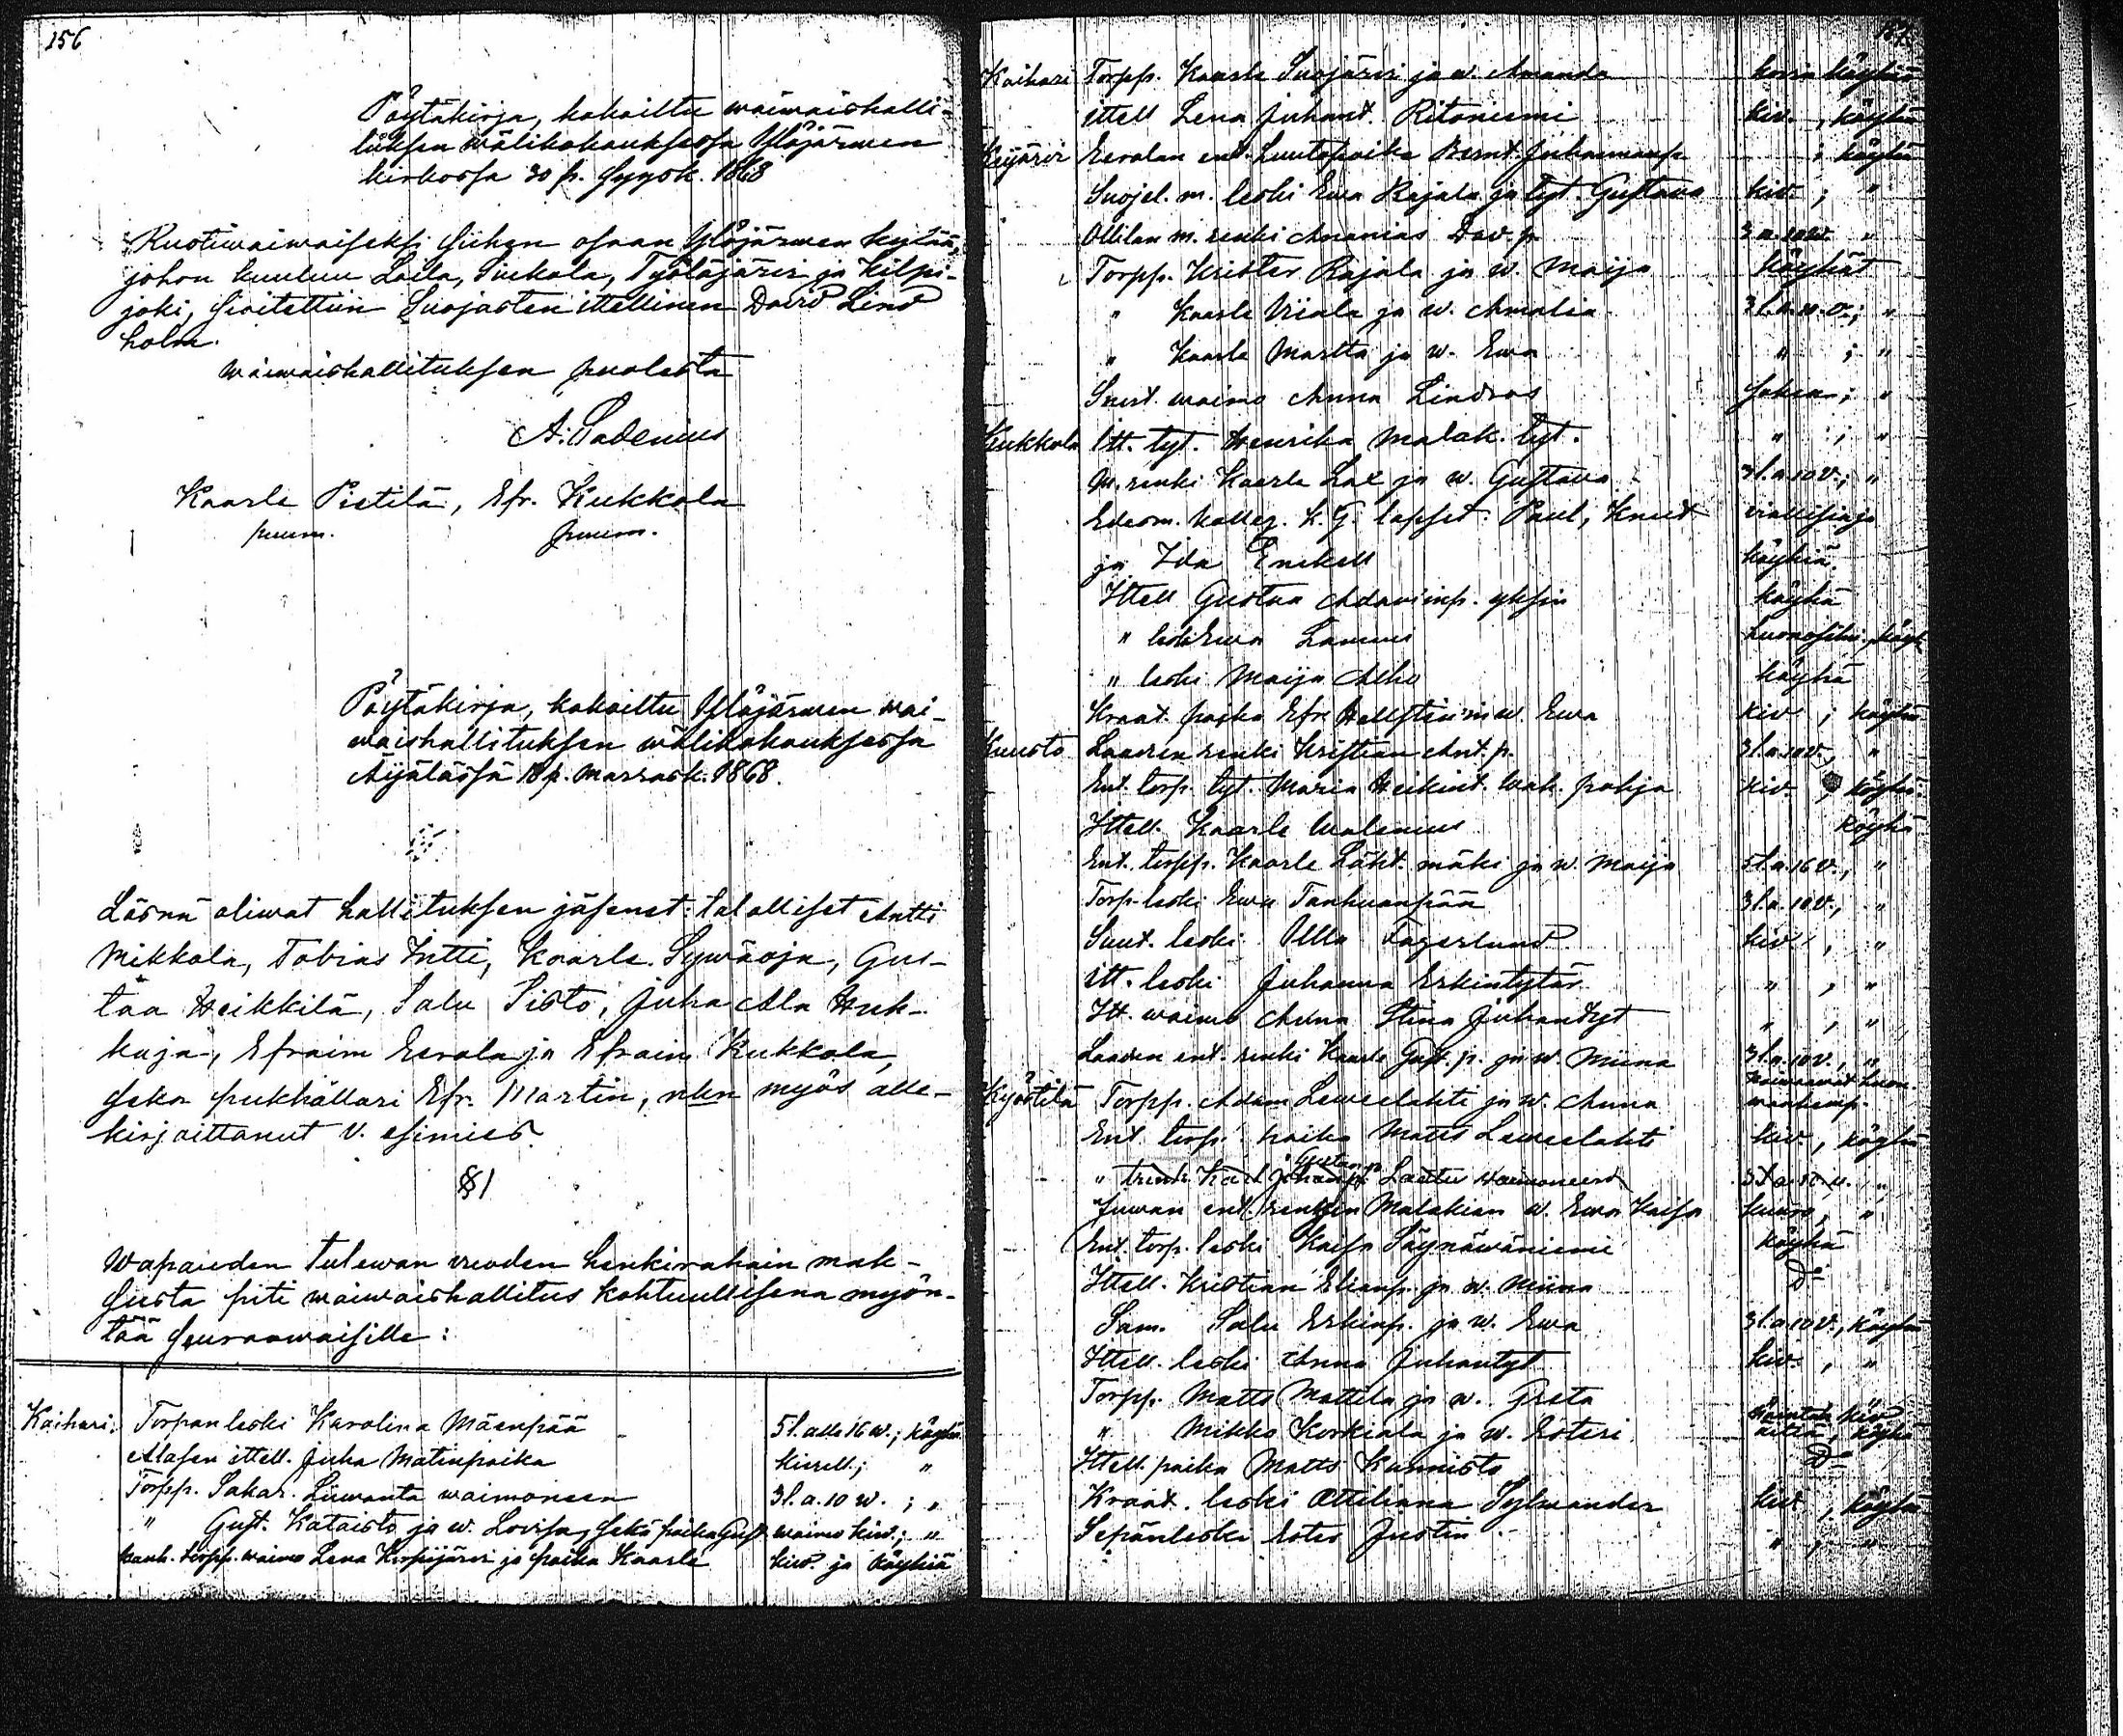 156
Pöytäkirja, kokoiltu waiwaishalli-
tuksen wälikokouksessa Ylöjärwen
kirkossa 20 p. Syysk. 1868
Ruotiwaiwaiseksi siihen osaan Ylöjärwen kylää,
johon kuuluu Laila, Siukola, Työläjärvi ja Kilpi-
joki, sioitettiin Suojasten ittellinen David Lind
holm.
waiwaishallituksen puolesta
A. Ladenius
Kaarle Pietilä, Efr. Kukkola
puum. puum.
Pöytäkirja, kokoiltu Ylöjärwen wai-
waishallituksen wälikokouksessa
Äijälässä 18 p. Marrask. 1868.
Läsnä oliwat hallituksen jäsenet: talolliset Antti
Mikkola, Tobias Intti, Kaarle Sywäoja, Gus-
taa Heikkilä, Salu Sisto, Juha Ala Huh-
kuja, Efraim Eerola ja Efraim Kukkola,
seka pukhållari Efr. Martin, nkn myös alle-
kirjoittanut v. esimies.
§ 1
Wapauden tulewan vuoden henkirahain mak-
susta piti waiwaishallitus kohtuullisena myön-
tää seuraawaisille:
Kaihari: Torpan leski Karolina Mäenpää 5 l. alle 16 w.; köyhä
Alasen ittell. Juha Matinpoika kivell.; "
Torpp. Sakar. Liiwanta waimoneen 3 l. a. 10 w.; "
" Gust. Kataisto ja w. Lovisa, sekä poika Gust. waimo kiw.; "
torpp. waimo Lena Korpijärvi ja poika Kaarle kiw. ja köyhiä
157.
Kaihari Torpp. Kaarle Suojärvi ja w. Amanda kovin köyhiä
ittell Lena Juhant. Ritoniemi kiv., köyhä
Keijärvi Eerolan ent. Luutapoika Bernt. Juhananp. ; köyhä
Suojel. m. leski Ewa Rajala ja tyt. Gustava kiv. ; "
Ollilan m. renki Ananias Dav. p. 3 a. 10 w. "
Torpp. Krister Rajala ja w. Maija köyhät
" Kaarle Viiala ja w. Amalia 3 l. a. 10. v.; "
" Kaarle Martta ja w. Ewa " ; "
waimo Anna Lindroos sokea; "
Kukkola Itt. tyt. Henrika Malak. tyt. " ; "
M. renki Kaarle Lax ja w. Gustava 3 l. a 10 v.; "
Edesm. Kolleg. K. G. lapset: Paul, Knut viallisia ja
ja Ida Enckell köyhiä.
Ittell Gustaa Adaminp. yksin köyhä
" leski Ewa Lammi köyh
" leski Maija Alho köyhä
Kraat. poika Efr. Hellsten w. Ewa kiv ; köyhä
Kuusto Laurin renki Kristian Ant. p. 3 l. a. 10 v., "
Ent. torp. tyt. Maria Heikint. Wah. pohja kiv. ; köyhä.
Ittell. Kaarle Walenius köyhä
Ent. torpp. Kaarle Läht. mäki ja w. Maija 5 l. a. 16 v., "
Torp. leski Ewa Tanhuanpää 3 l. a. 10 v., "
leski Ulla Fagerlund kiv , "
Itt. leski Juhanna Erkintytär " , "
Itt. waimo Anna Stina Juhantyt " , "
Laurin ent. renki Kaarle Gust. p. ja w. Miina 3 l. a. 10 v., "
Kyöstilä Torpp. Adam Leweelahti ja w. Anna
Ent. torp. poika Matts Leweelahti kiv, köyhä
" Karl Gustanp. Lautu waimoneen "
Juwan ent. renkin Malakian w. Ewa Kaisa kuuro, "
Ent. torp. leski Kaisa Säynäwäniemi köyhä
Ittell. Kristian Elianp. ja w. Miina D:o
Sam. Salu Erkinp. ja w. Ewa 3 l. a 10 v., köyhiä
Ittell. leski Anna Juhantyt kiv. , "
Torpp. Matts Mattila ja w. Greta
" Mikko Korkiala ja w. Esteri köyhä
Ittell. poika Matts Kunnisto D:o
Kraat. leski Ottiliana Sylwander kiv , köyhä
Sepänleski Ester Justin " ; "